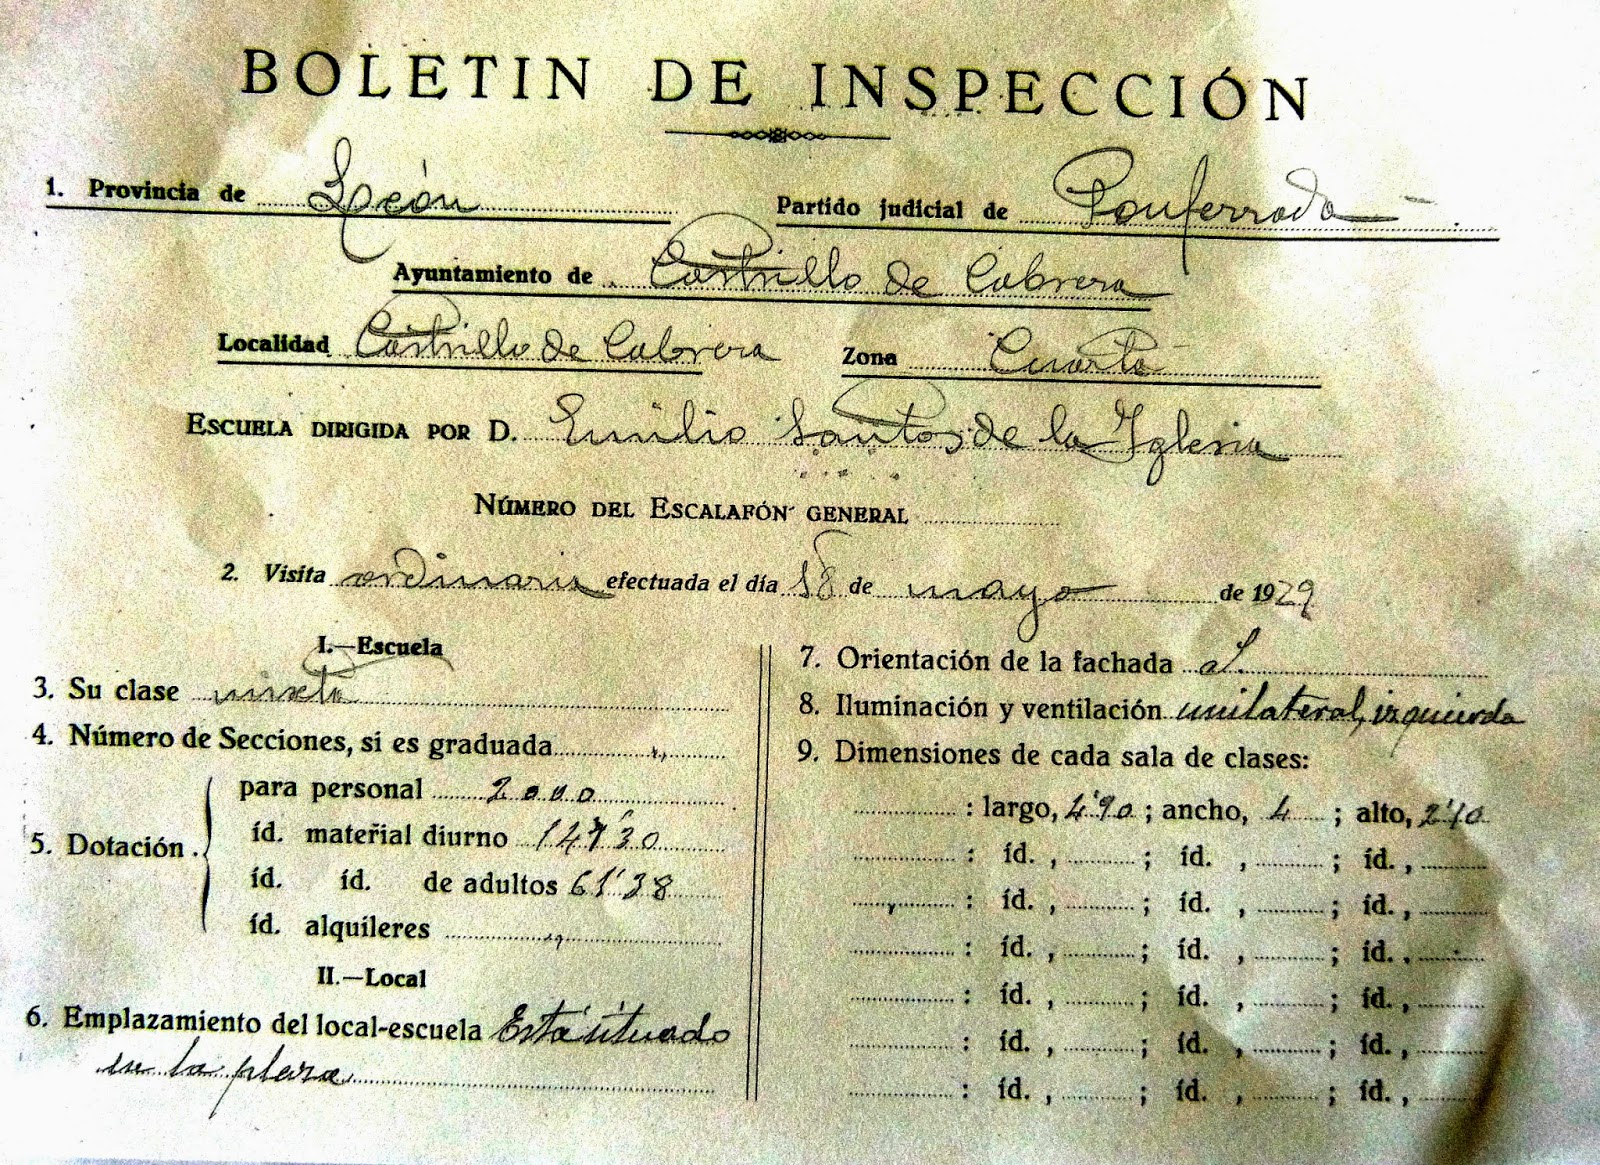 BOLETIN DE INSPECCIÓN
1. Provincia de León Partido judicial de Ponferrada
Ayuntamiento de Castrillo de Cabrera
Localidad Castrillo de Cabrera Zona Cuarta
ESCUELA DIRIGIDA POR D. Emilio Santos de la Iglesia
NÚMERO DEL ESCALAFÓN GENERAL
2. Visita ordinaria efectuada el día 18 de mayo de 1929
I.—Escuela
3. Su clase mixta
4. Número de Secciones, si es graduada „
5. Dotación
para personal 2000
íd. material diurno
íd. íd. de adultos 61'38
íd. alquileres „
II.—Local
6. Emplazamiento del local-escuela Está situado
en la plaza
7. Orientación de la fachada al
8. Iluminación y ventilación unilateral, izquierda
9. Dimensiones de cada sala de clases:
: largo, 4'90 ; ancho, 4 ; alto, 2'10
: íd. , ; íd. , ; íd. ,
: íd. , ; íd. , ; íd. ,
: íd. , ; íd. , ; íd. ,
: íd. , ; íd. , ; íd. ,
: íd. , ; íd. , ; íd. ,
: íd. , ; íd. , ; íd. ,